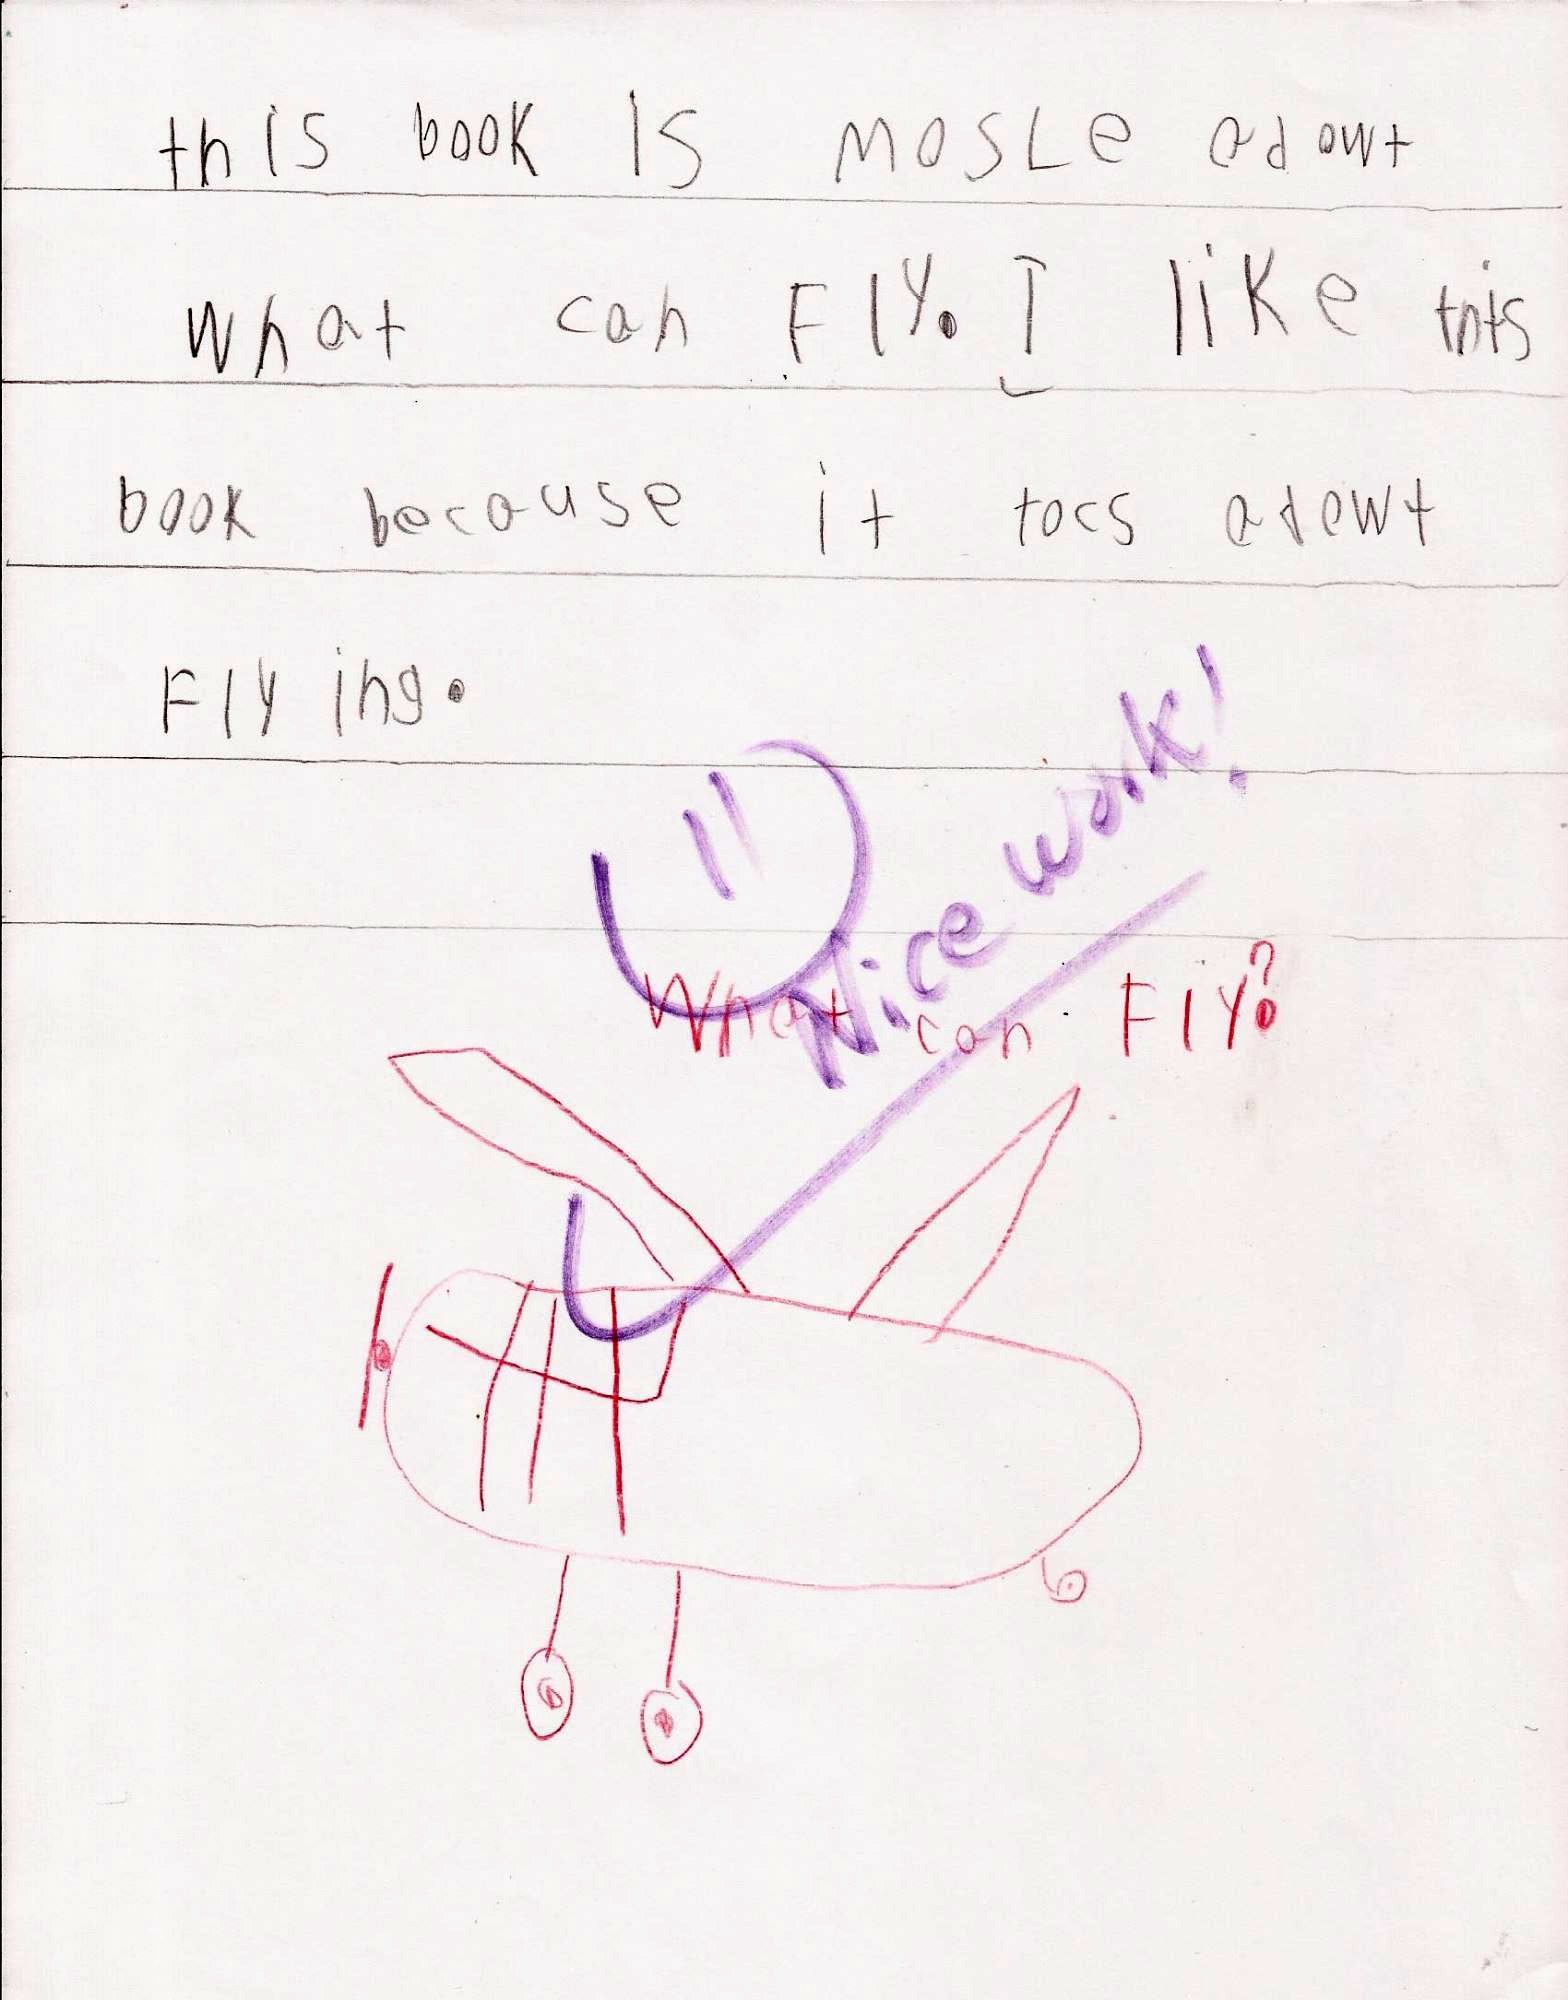 this book Is mosLe adowt
what can FlY. I like this
book because it tocs adowt
FlY ing.
Nice work!
What can FlY?